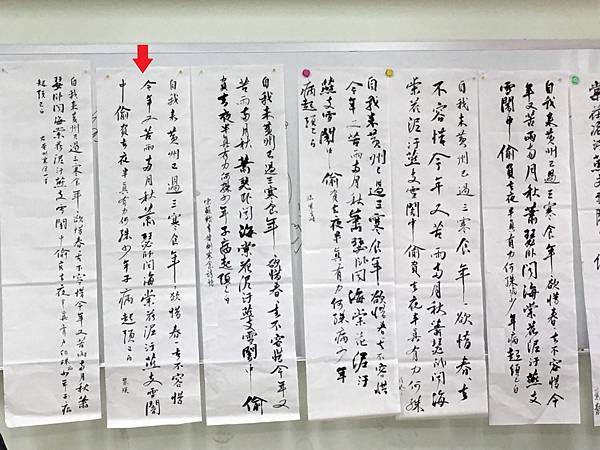 棠花泥汙燕支
自我来黄州已過三寒食年年欲惜春春去不容惜今
年又苦雨兩月秋蕭瑟卧聞海棠花泥汙燕支
雪闇中偷負去夜半真有力何殊少年病起頭已白
自我来黄州已過三寒食年年欲惜春春去
不容惜今年又苦雨兩月秋蕭瑟卧聞海
棠花泥汙燕支雪闇中偷負去夜半真有力何殊
自我来黄州已過三寒食年年欲惜春春去不容惜
今年又苦雨兩月秋蕭瑟卧聞海棠花泥汙
燕支雪闇中偷負去夜半真有力何殊病少年
病起頭已白
自我来黄州已過三寒食年年欲惜春春去不容惜今年又
苦雨兩月秋蕭瑟卧聞海棠花泥汙燕支雪闇中偷
負去夜半真有力何殊少年子病起頭已白
自我来黄州已過三寒食年年欲惜春春去不容惜
今年又苦雨兩月秋蕭瑟卧聞海棠花泥汙燕支雪闇
中偷負去夜半真有力何殊少年子病起頭已白
自我来黄州已過三寒食年年欲惜春春去不容惜今年又苦雨兩月秋蕭
瑟卧聞海棠花泥汙燕支雪闇中偷負去夜半真有力何殊少年子病
起頭已白